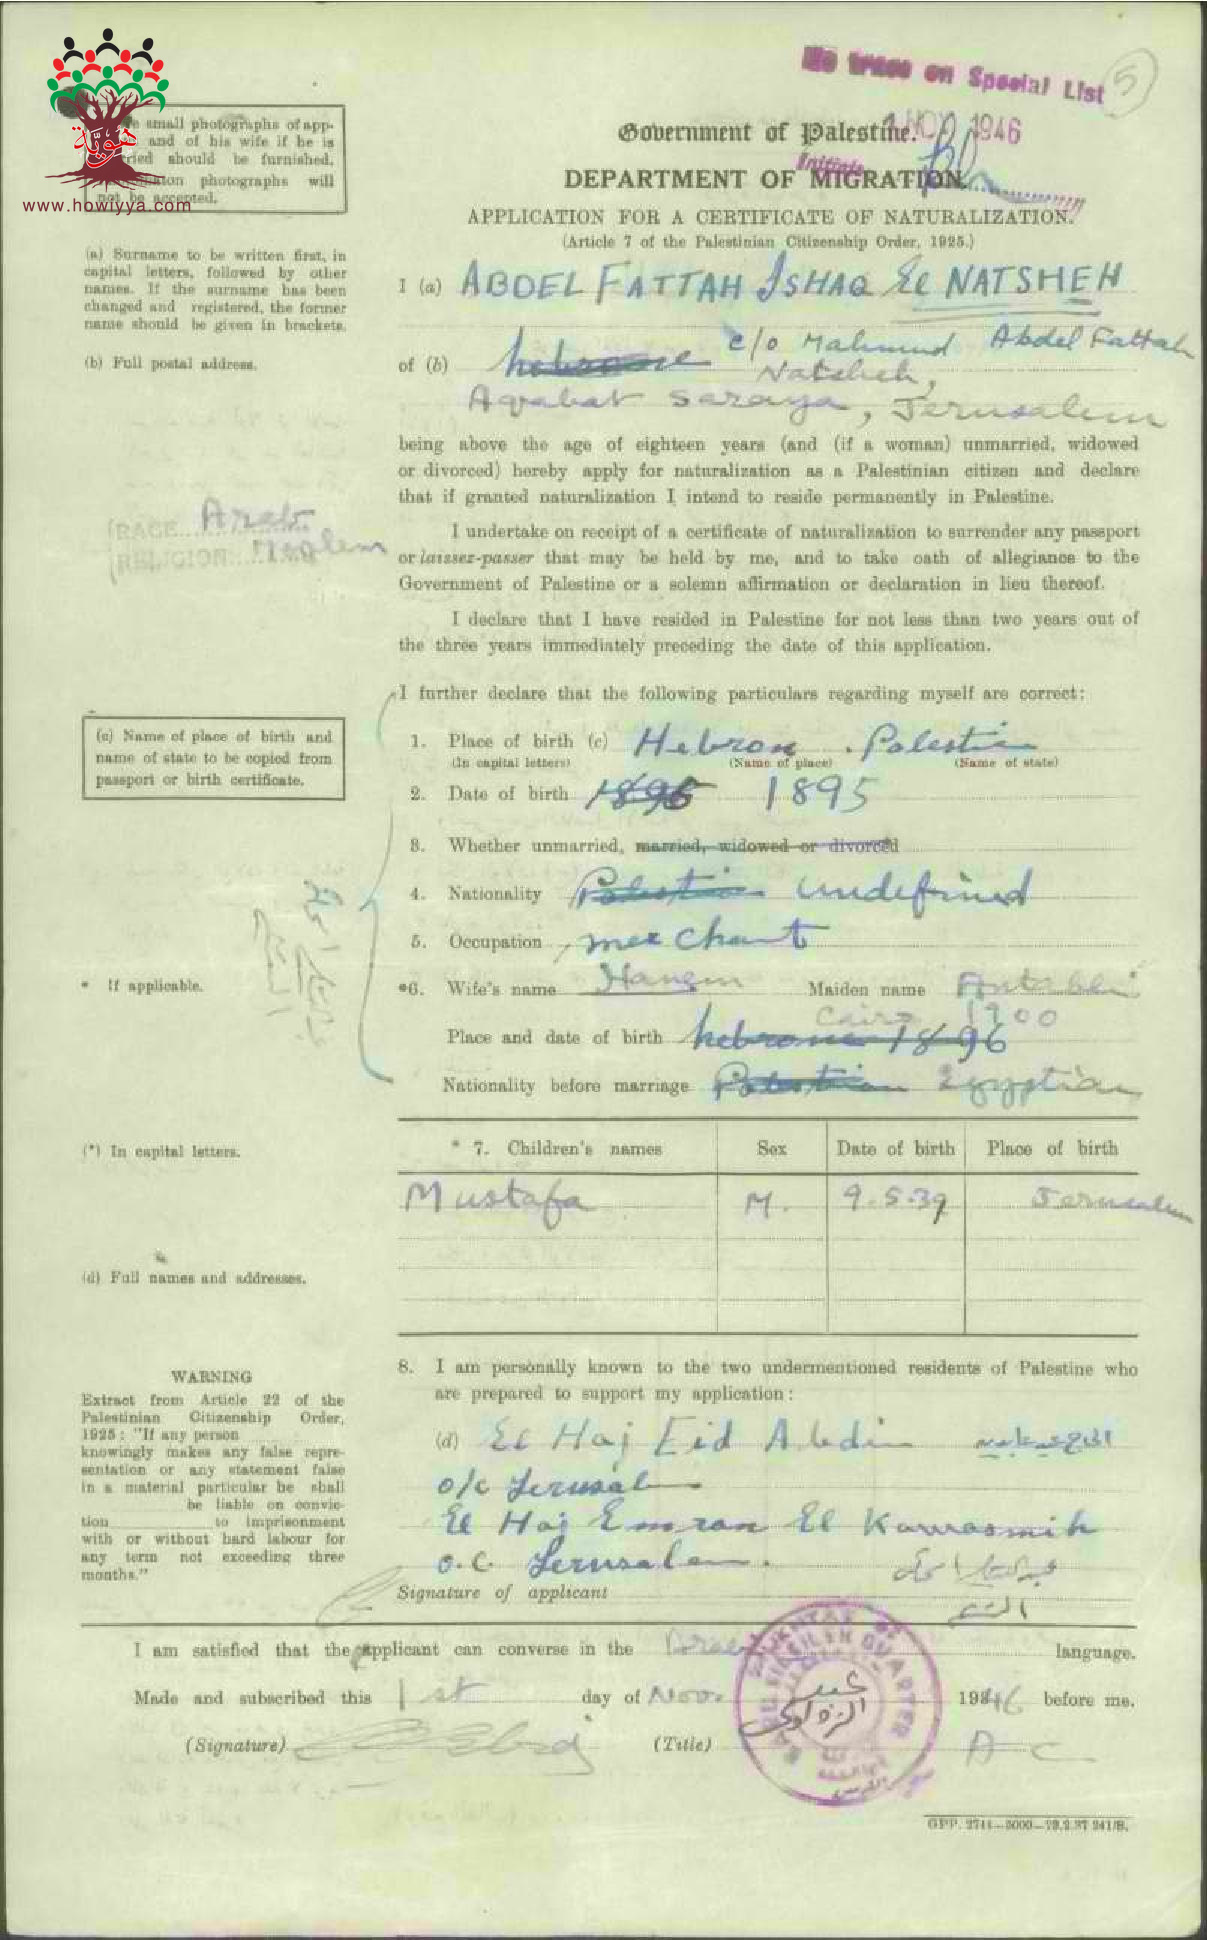 No trace on Special List
5
1 NOV 1946
Initials
Government of Palestine.
DEPARTMENT OF MIGRATION.
APPLICATION FOR A CERTIFICATE OF NATURALIZATION.
(Article 7 of the Palestinian Citizenship Order, 1925.)
هوية
www.howiyya.com
small photographs of app-
and of his wife if he is
should be furnished.
photographs will
not be accepted.
(a) Surname to be written first, in
capital letters, followed by other
names. If the surname has been
changed and registered, the former
name should be given in brackets.
I (a) ABDEL FATTAH ISHAQ El NATSHEH
(b) Full postal address.
of (b) hebrone c/o Mahmud Abdel Fattah
Natsheh,
Aqabat Saraya, Jerusalem
being above the age of eighteen years (and (if a woman) unmarried, widowed
or divorced) hereby apply for naturalization as a Palestinian citizen and declare
that if granted naturalization I intend to reside permanently in Palestine.
RACE Arab
RELIGION Moslem
I undertake on receipt of a certificate of naturalization to surrender any passport
or laisser-passer that may be held by me, and to take oath of allegiance to the
Government of Palestine or a solemn affirmation or declaration in lieu thereof.
I declare that I have resided in Palestine for not less than two years out of
the three years immediately preceding the date of this application.
I further declare that the following particulars regarding myself are correct:
(c) Name of place of birth and
name of state to be copied from
passport or birth certificate.
1. Place of birth (c) Hebron. Palestin
(In capital letters) (Name of place) (Name of state)
2. Date of birth 1896 1895
3. Whether unmarried, married, widowed or divorced
4. Nationality Palestin undefined
5. Occupation merchant
* If applicable.
*6. Wife's name Hanem Maiden name Antabli
Cairo 1900
Place and date of birth hebrone 1896
Nationality before marriage Palestinian Egyptian
(*) In capital letters.
* 7. Children's names Sex Date of birth Place of birth
Mustafa M. 9.5.39 Jerusalem
(d) Full names and addresses.
8. I am personally known to the two undermentioned residents of Palestine who
are prepared to support my application:
(d) El Haj Eid Abdin
o/c Jerusalem
El Haj Emran El Kawasmih
o.c. Jerusalem.
Signature of applicant
WARNING
Extract from Article 22 of the
Palestinian Citizenship Order,
1925: "If any person
knowingly makes any false repre-
sentation or any statement false
in a material particular be shall
be liable on convic-
tion to imprisonment
with or without hard labour for
any term not exceeding three
months."
I am satisfied that the applicant can converse in the language.
Made and subscribed this 1st day of Nov. 1946 before me.
(Signature) (Title) A C
MUKHTAR QUARTER
GPP. 2744—5000—22.2.37 241/S.